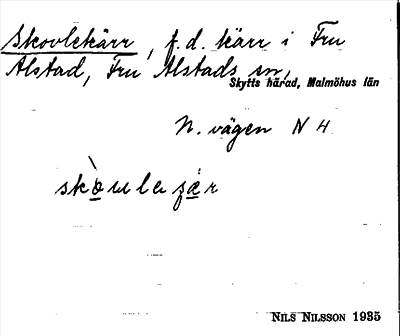 Skovlekärr, f.d. kärr i Fru
Alstad, Fru Alstads sn,
Skytts härad, Malmöhus län
N. vägen N 4
skòulaʒær
NILS NILSSON 1935